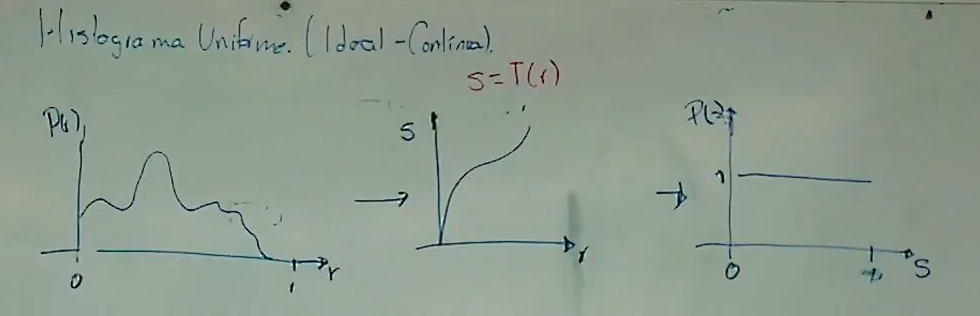 Histograma Uniforme. (Ideal - Continua).
S = T(r)
P(r)
0
1
r
S
r
1
0
S